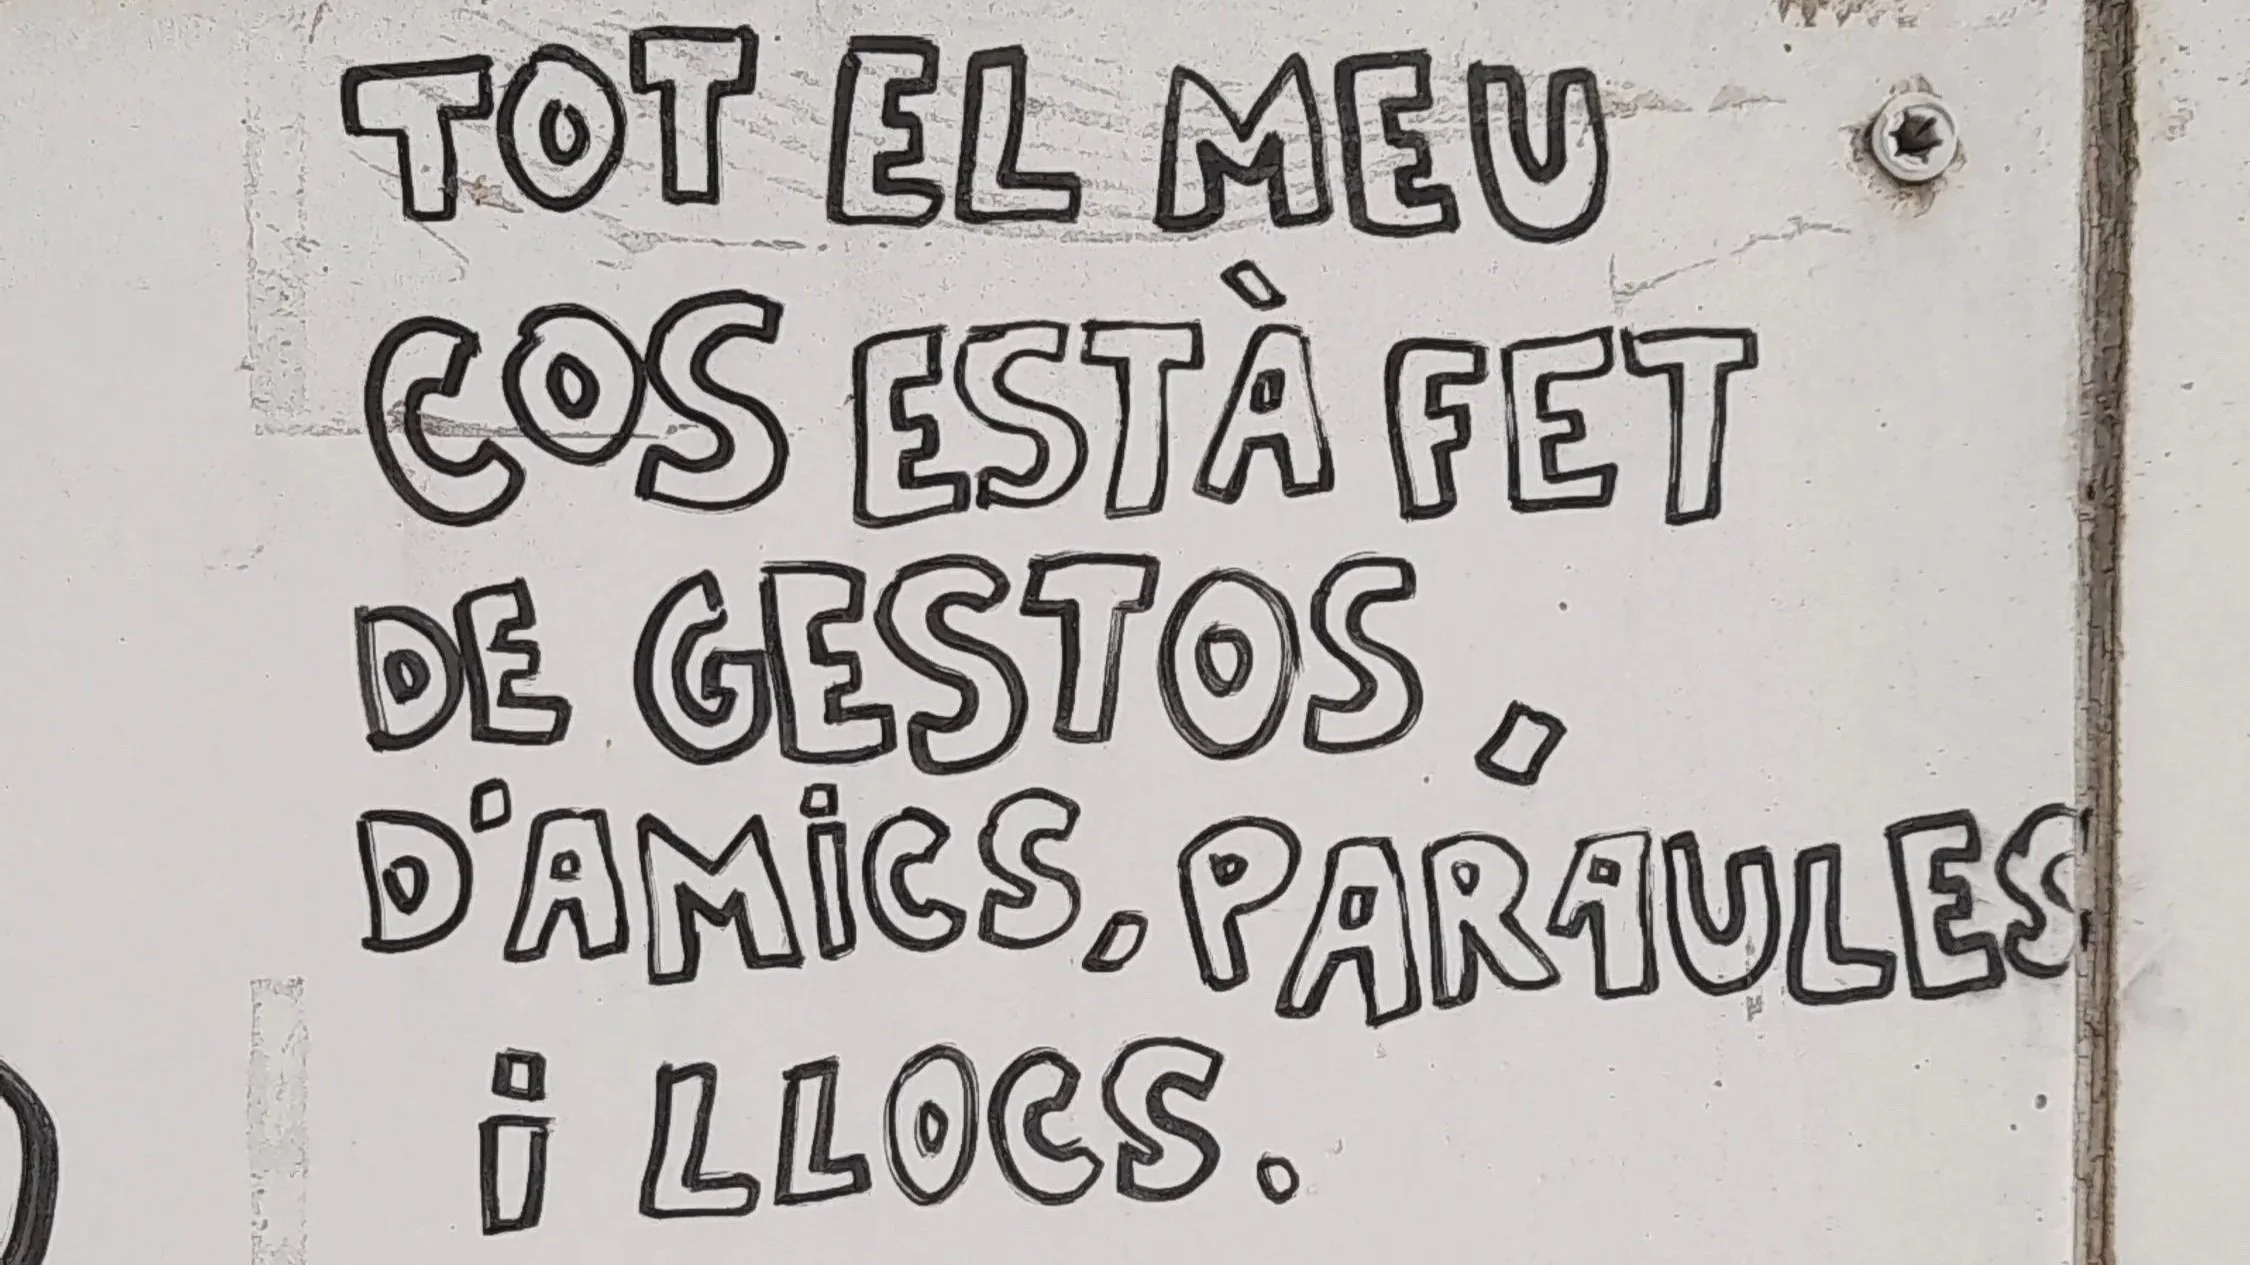 TOT EL MEU
COS ESTÀ FET
DE GESTOS,
D'AMiCS, PARAULES
i LLOCS.